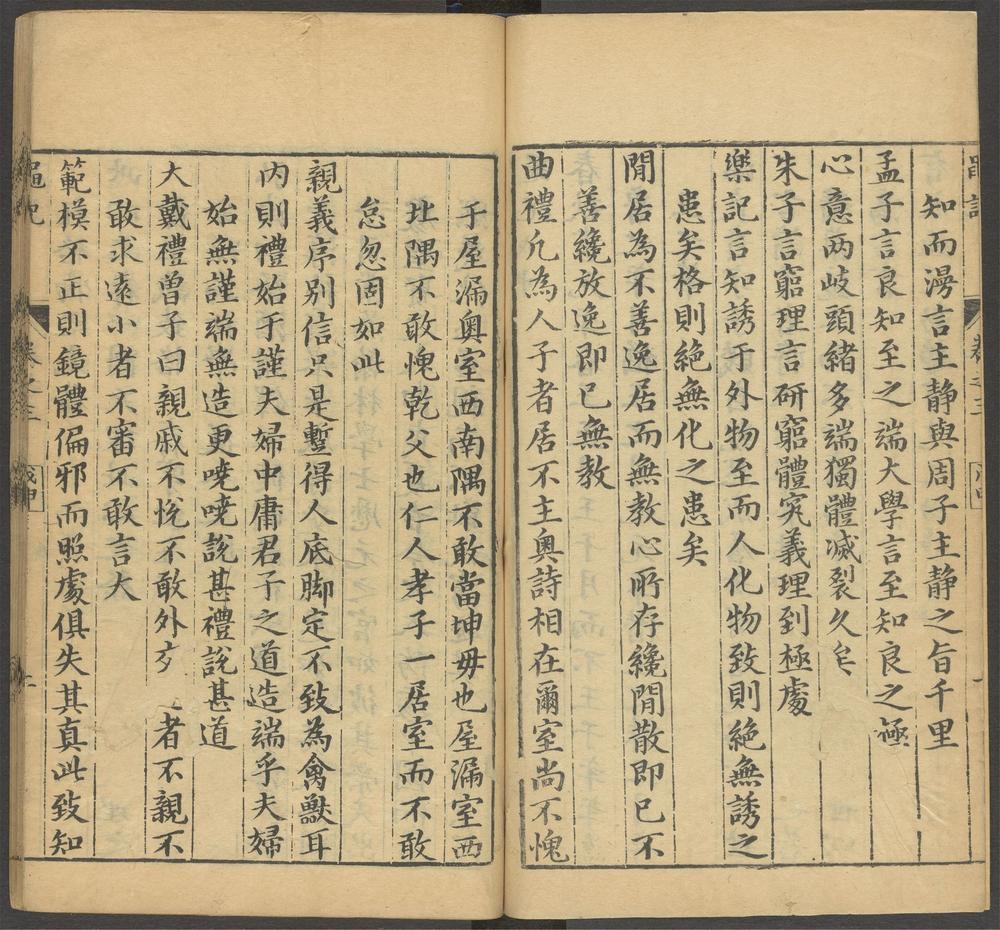 知而漫言主静與周子主静之旨千里
孟子言良知至之端大學言至知良之極
心意两岐頭緒多端獨體滅裂久矣
朱子言窮理言研窮體究義理到極處
樂記言知誘于外物至而人化物致則絶無誘之
患矣格則絶無化之患矣
閒居為不善逸居而無教心所存纔閒散即已不
善纔放逸即已無教
曲禮凡為人子者居不主奥詩相在爾室尚不愧
于屋漏奥室西南隅不敢當坤毋也屋漏室西
北隅不敢愧乾父也仁人孝子一居室而不敢
怠忽固如此
親義序别信只是蹔得人底脚定不致為禽獸耳
内則禮始于謹夫婦中庸君子之道造端乎夫婦
始無謹端無造更嘵嘵說甚禮說甚道
大戴禮曾子曰親戚不悅不敢外 者不親不
敢求遠小者不審不敢言大
範模不正則鏡體偏邪而照處俱失其真此致知
卷之三